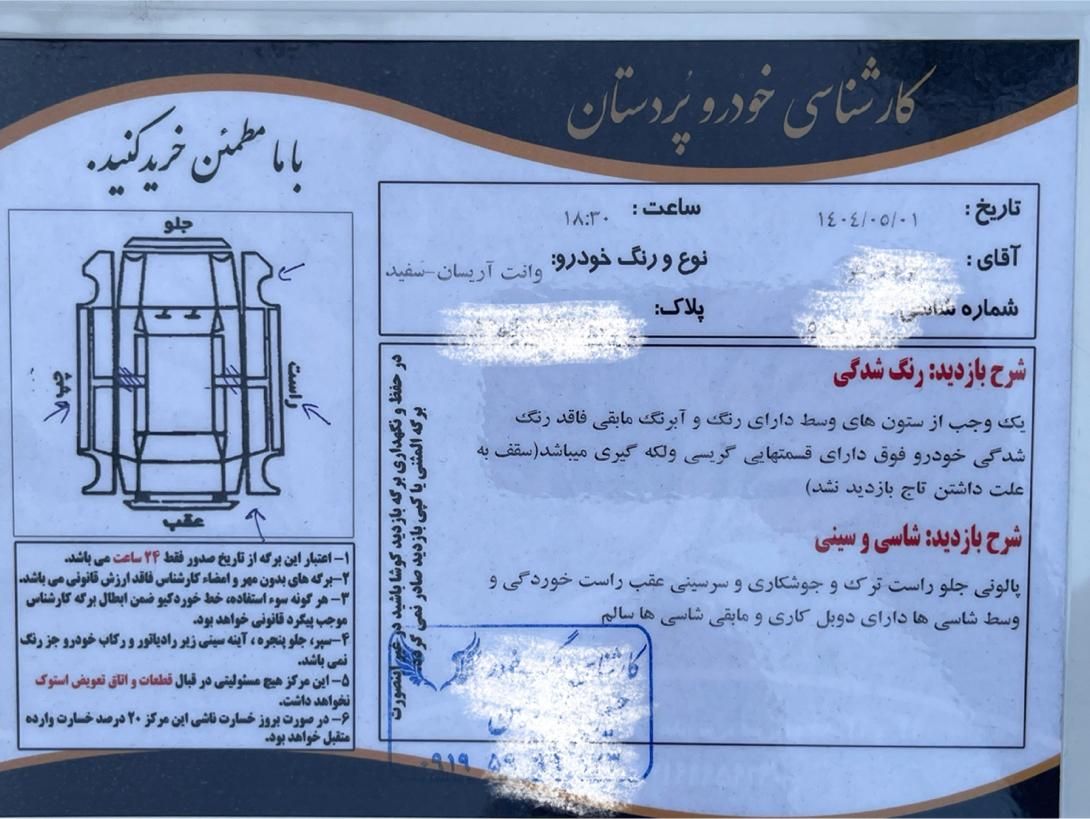 کارشناسی خودرو پردستان
با ما مطمئن خرید کنید.
تاریخ: ۱۴۰۴/۰۵/۰۱
ساعت: ۱۸:۳۰
آقای:
نوع و رنگ خودرو: وانت آریسان-سفید
شماره شاسی:
پلاک:
شرح بازدید: رنگ شدگی
یک وجب از ستون های وسط دارای رنگ و آبرنگ مابقی فاقد رنگ
شدگی خودرو فوق دارای قسمتهایی گریسی ولکه گیری میباشد(سقف به
علت داشتن تاج بازدید نشد)
شرح بازدید: شاسی و سینی
پالونی جلو راست ترک و جوشکاری و سرسینی عقب راست خوردگی و
وسط شاسی ها دارای دوبل کاری و مابقی شاسی ها سالم
در حفظ و نگهداری برگه بازدید کوشا باشید در غیر اینصورت
برگه المثنی یا کپی بازدید صادر نمی گردد
جلو
راست
چپ
عقب
۱- اعتبار این برگه از تاریخ صدور فقط ۲۴ ساعت می باشد.
۲-برگه های بدون مهر و امضاء کارشناس فاقد ارزش قانونی می باشد.
۳- هر گونه سوء استفاده، خط خوردگیو ضمن ابطال برگه کارشناس
موجب پیگرد قانونی خواهد بود.
۴- سپر، جلو پنجره ، آینه سینی زیر رادیاتور و رکاب خودرو جز رنگ
نمی باشد.
۵- این مرکز هیچ مسئولیتی در قبال قطعات و اتاق تعویض استوک
نخواهد داشت.
۶- در صورت بروز خسارت ناشی این مرکز ۲۰ درصد خسارت وارده
متقبل خواهد بود.